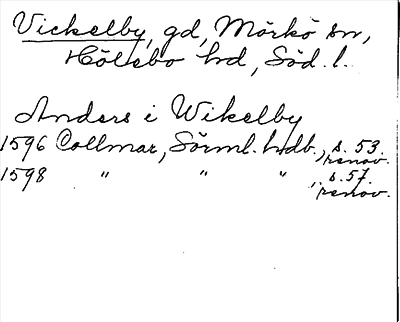 Vickelby, gd, Mörkö sn,
Hölebo hd, Söd. l.
Anders i Wikelby
1596 Collmar, Sörml. hdb., s. 53. renov.
1598 " " " , s. 57. renov.